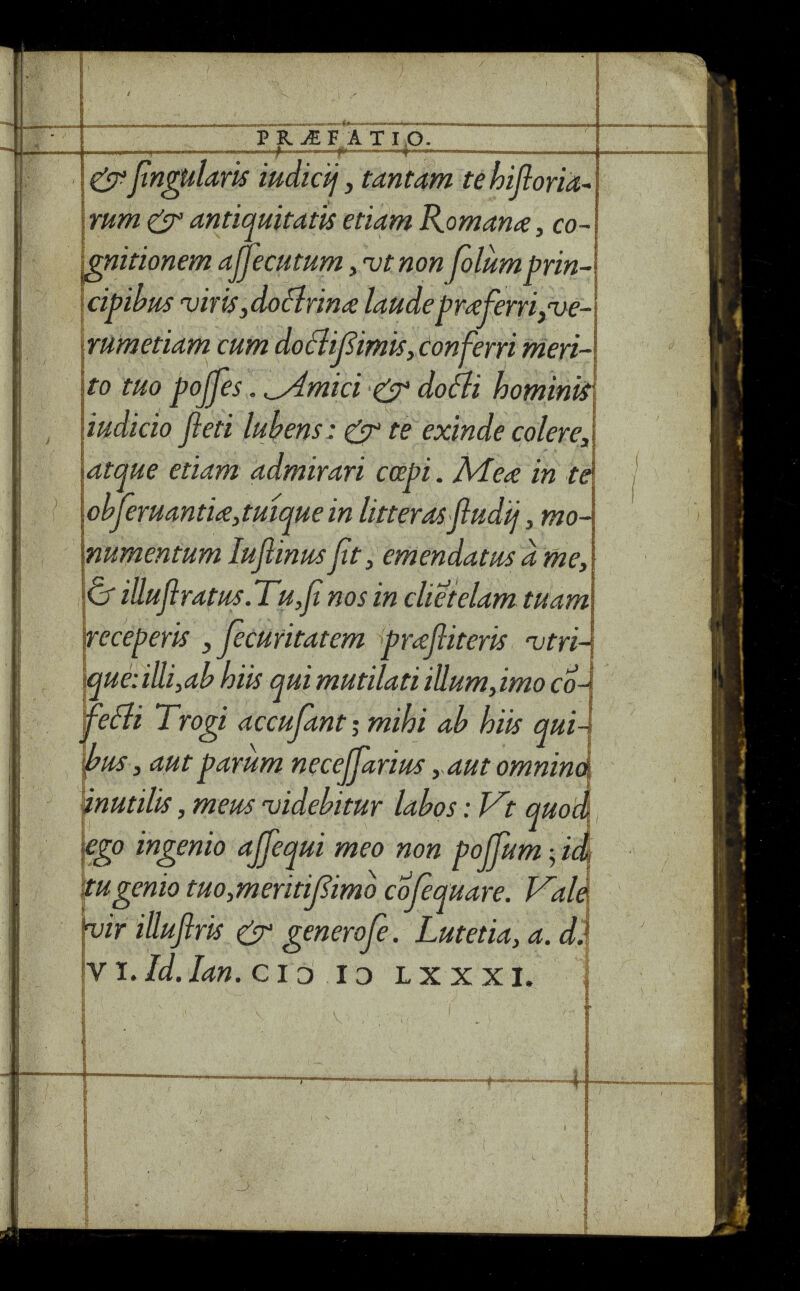 PRÆFATIO.
& ſingularis iudicij, tantam te hiſtoria-
rum & antiquitatis etiam Romanæ, co-
gnitionem aſſecutum, vt non ſolùm prin-
cipibus viris, doctrinæ laude præferri, ve-
rùm etiam cum doctißimis, conferri meri-
to tuo poſſes. Amici & docti hominis
iudicio ſteti lubens: & te exinde colere,
atque etiam admirari cœpi. Meæ in te
obſeruantiæ, tuíque in litteras ſtudij, mo-
numentum Iuſtinus ſit, emendatus à me,
& illuſtratus. Tu, ſi nos in cliẽtelam tuam
receperis, ſecuritatem præſtiteris vtri-
que: illi, ab hiis qui mutilati illum, imo cõ-
fecti Trogi accuſant; mihi ab hiis qui-
bus, aut parùm neceſſarius, aut omnino
inutilis, meus videbitur labos: Vt quod
ego ingenio aſſequi meo non poſſum; id
tu genio tuo, meritißimò cõſequare. Vale
vir illuſtris & generoſe. Lutetia, a. d.
VI. Id. Ian. CIↃ IↃ LXXXI.